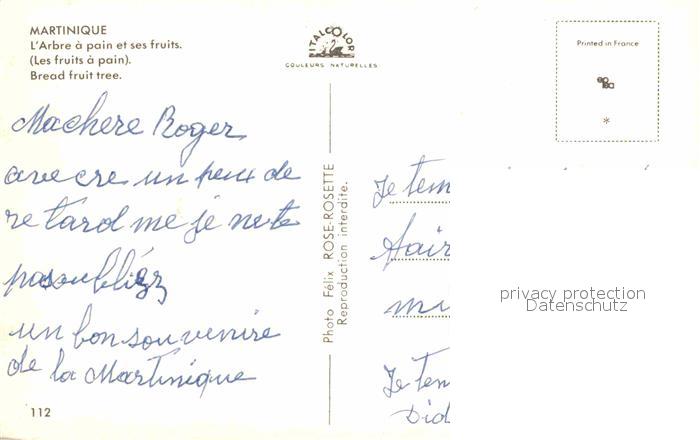 MARTINIQUE
L'Arbre à pain et ses fruits.
(Les fruits à pain).
Bread fruit tree.
ITALCOLOR
COULEURS NATURELLES
Printed in France
*
Machere Roger
avecre un peux de
retard me je ne te
pasoubliéz
un bon souvenire
de la Martinique
112
Photo Félix ROSE-ROSETTE
Reproduction interdite.
Je tem
fair
mi
Je ten
Did
privacy protection
Datenschutz